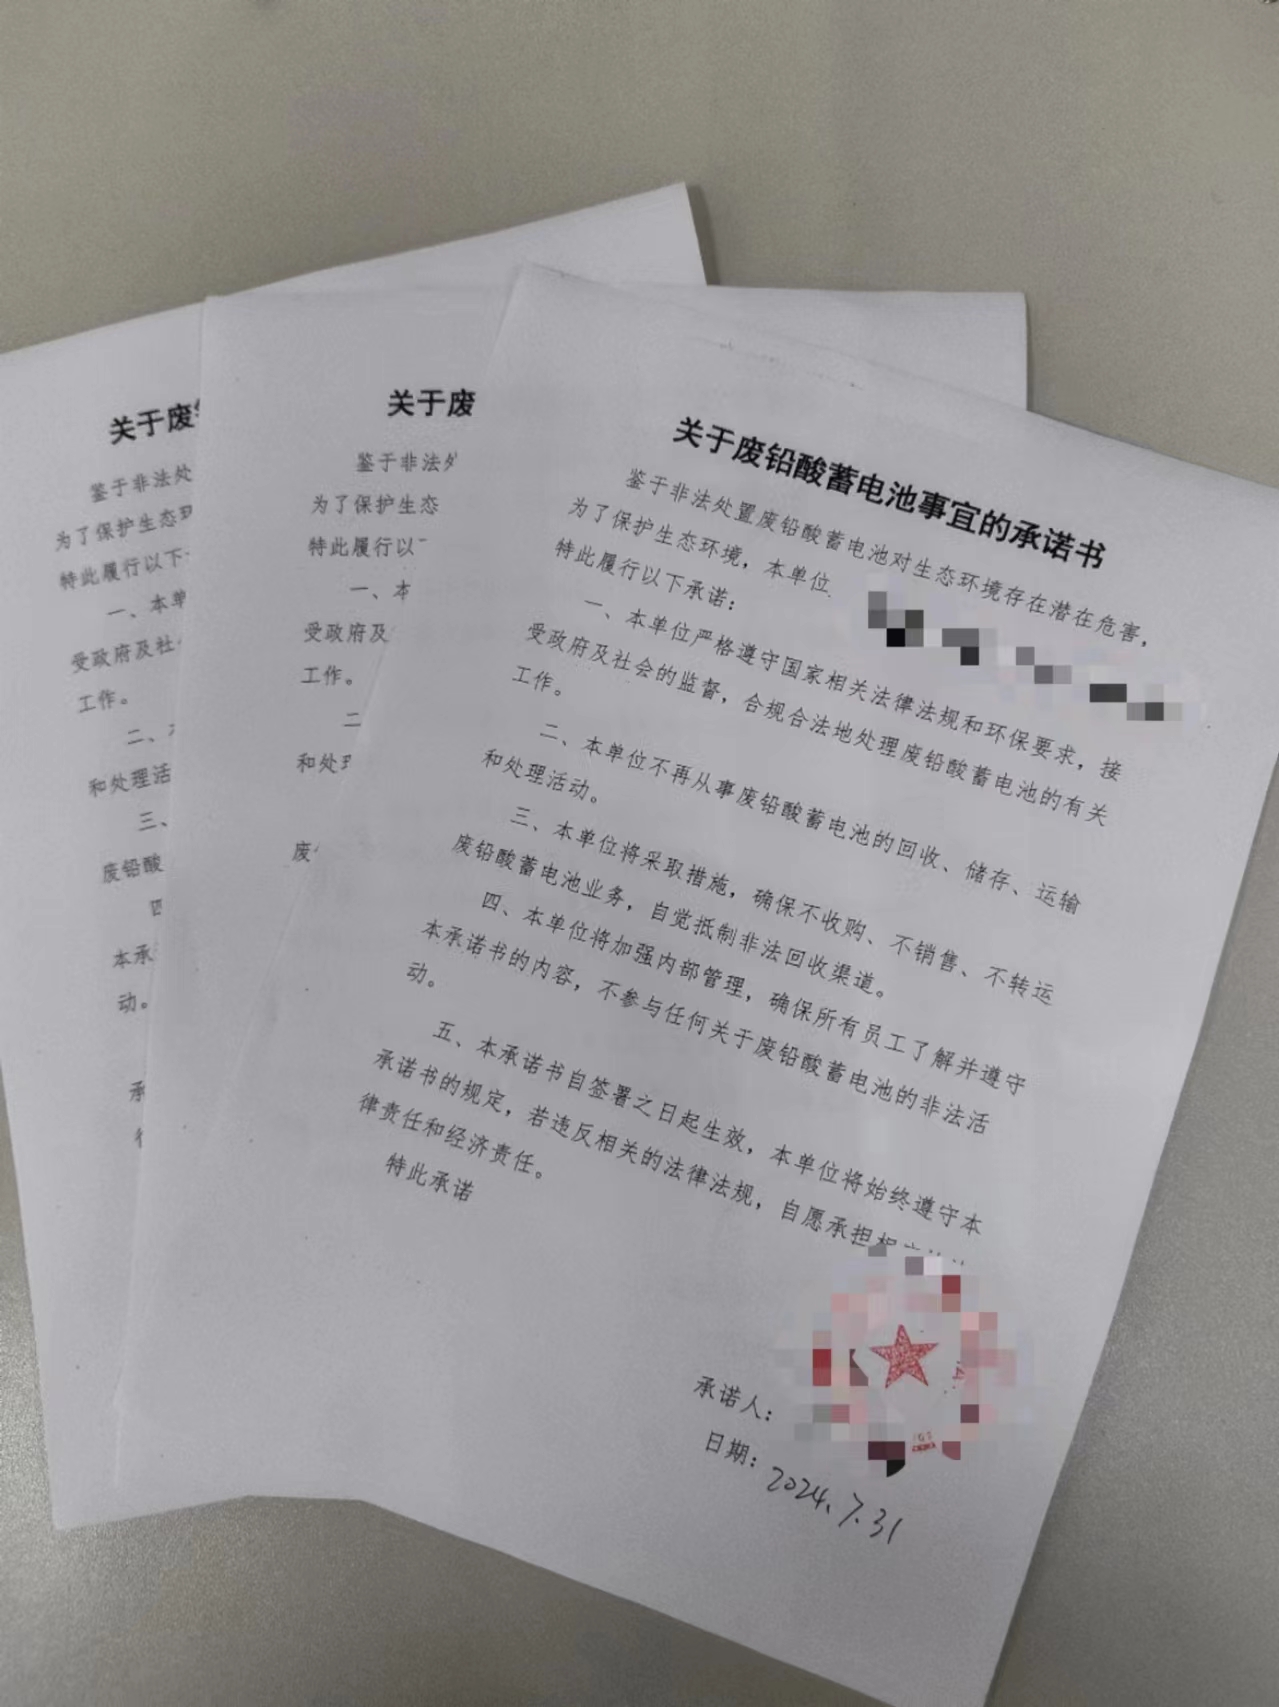 关于废
鉴于非法处
为了保护生态环
特此履行以下
一、本单
受政府及社
工作。
二、
和处理活
三、
废铅酸
四
本承
动。
承
关于废
鉴于非法
为了保护生态
特此履行以
一、本
受政府及
工作。
二
和处
废
关于废铅酸蓄电池事宜的承诺书
鉴于非法处置废铅酸蓄电池对生态环境存在潜在危害，
为了保护生态环境，本单位
特此履行以下承诺：
一、本单位严格遵守国家相关法律法规和环保要求，接
受政府及社会的监督，合规合法地处理废铅酸蓄电池的有关
工作。
二、本单位不再从事废铅酸蓄电池的回收、储存、运输
和处理活动。
三、本单位将采取措施，确保不收购、不销售、不转运
废铅酸蓄电池业务，自觉抵制非法回收渠道。
四、本单位将加强内部管理，确保所有员工了解并遵守
本承诺书的内容，不参与任何关于废铅酸蓄电池的非法活
动。
五、本承诺书自签署之日起生效，本单位将始终遵守本
承诺书的规定，若违反相关的法律法规，自愿承担
律责任和经济责任。
特此承诺
承诺人：
日期：2024.7.31